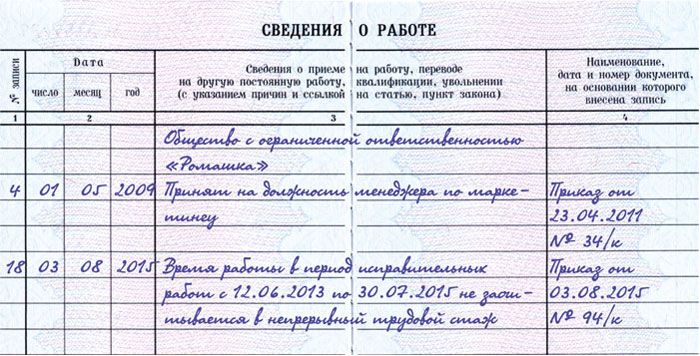 СВЕДЕНИЯ О РАБОТЕ
№ записи
Дата
число
месяц
год
Сведения о приеме на работу, переводе
на другую постоянную работу, квалификации, увольнении
(с указанием причин и ссылкой на статью, пункт закона)
Наименование,
дата и номер документа,
на основании которого
внесена запись
1 2 3 4
Общество с ограниченной ответственностью
«Ромашка»
4 01 05 2009 Принят на должность менеджера по марке- Приказ от
тинец 23.04.2011
№ 34/к
18 03 08 2015 Время работы в период исправительных Приказ от
работ с 12.06.2013 по 30.07.2015 не засчи- 03.08.2015
тывается в непрерывный трудовой стаж № 94/к